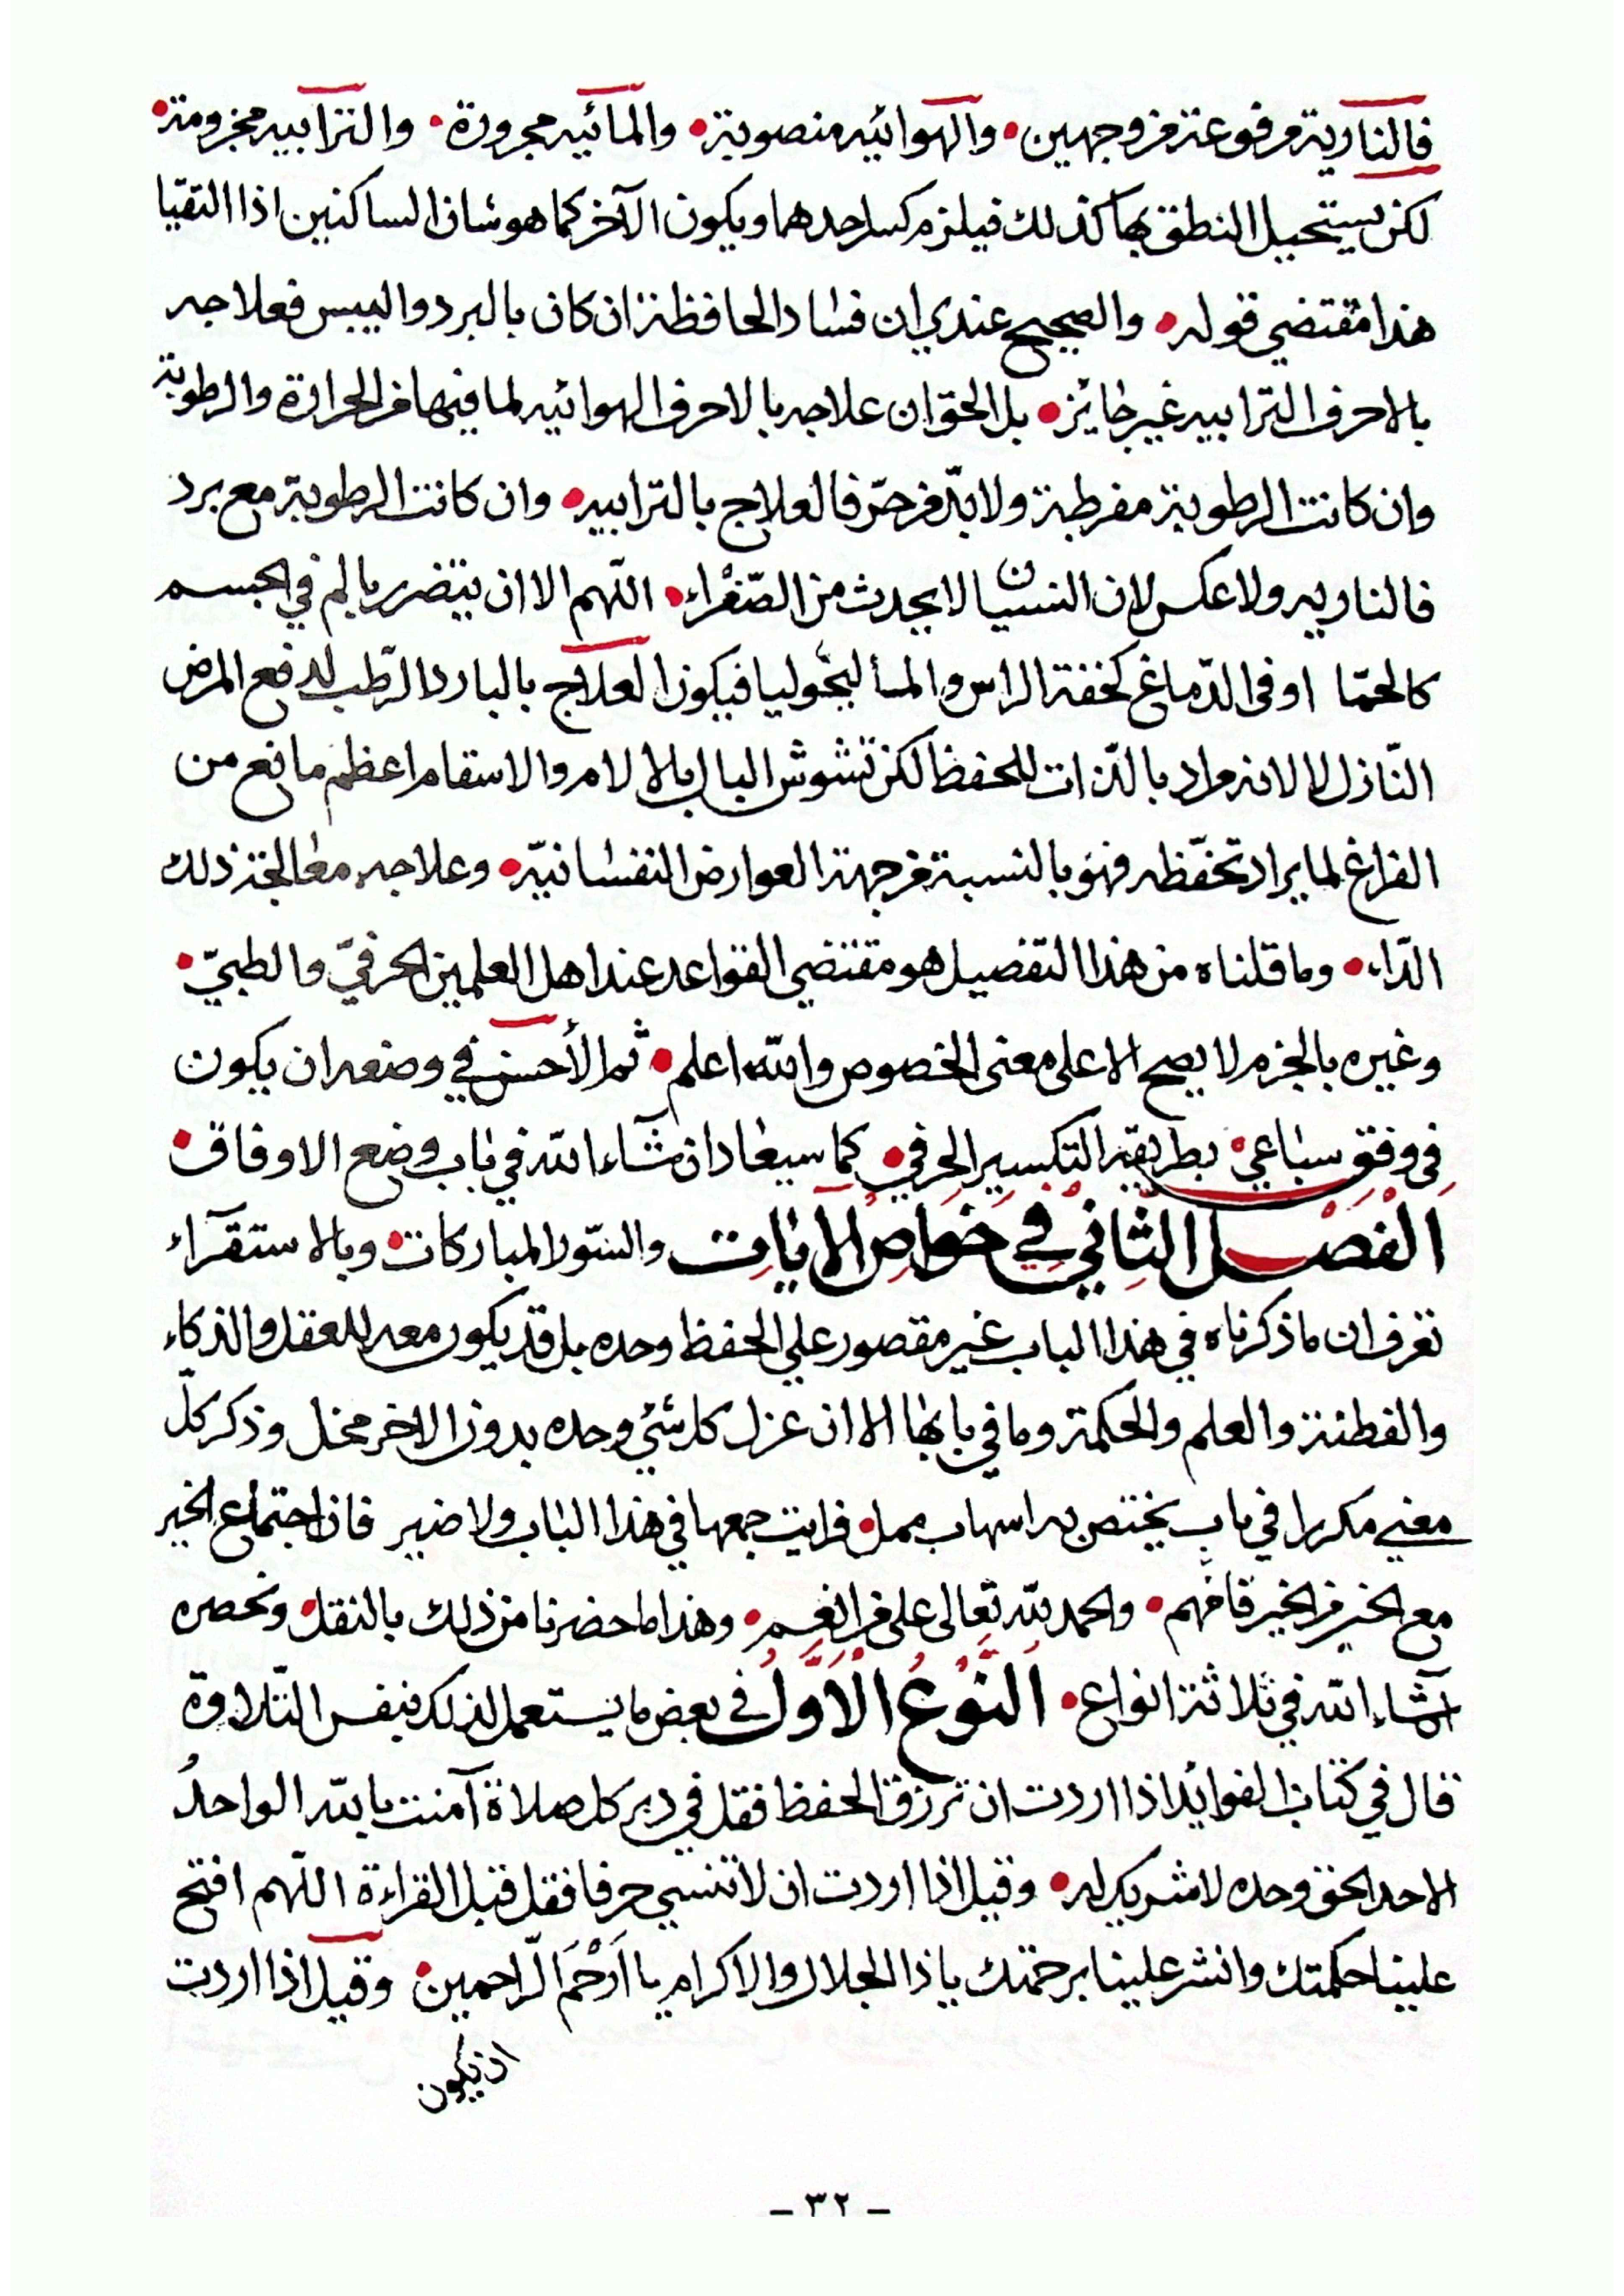 فالنارية مرفوعة من وجهين • والهوائيه منصوبة • والمائيه مجرورة • والترابيه مجزومة •
لكن يستحيل النطق بها كذلك فيلزم كسر احدهما ويكون الآخر كما هو شان الساكنين اذا التقيا
هذا مقتضي قوله • والصحيح عندي ان فساد الحافظة ان كان بالبرد واليبس فعلاجه
بالاحرف الترابيه غير جائز • بل الحق ان علاجه بالاحرف الهوائيه لما فيها من الحرارة والرطوبة
وان كانت الرطوبة مفرطة ولا بدّ من حرّ فالعلاج بالترابيه • وان كانت الرطوبة مع برد
فالناريه ولا عكس لان النسيان لا يحدث من الصّفراء • اللهم الا ان يتضرر بالم في الجسم
كالحمّا او في الدّماغ كخفة الراس والماليخوليا فيكون العلاج بالبارد الرّطب لدفع المرض
النّازل لا لانه مراد بالذات للحفظ لكن تشوش البال بالالام والاسقام اعظم مانع من
الفراغ لما يراد تحفّظه فهو بالنسبة من جهة العوارض النفسانيّه • وعلاجه معالجة ذلك
الدّاء • وما قلناه من هذا التفصيل هو مقتضي القواعد عند اهل العلمين الحرفيّ والطبيّ •
وغيره بالجزم لا يصح الا على معنى الخصوص والله اعلم • ثم الأحسن في وضعه ان يكون
في وفق سباعي • بطريقة التكسير الحرفي • كما سيعاد ان شآء الله في باب وضع الاوفاق •
الفصل الثّاني في خواص الايات والسّور المباركات • وبالاستقرآء
تعرف ان ما ذكرناه في هذا الباب غير مقصور علي الحفظ وحده بل قد يكون معه للعقل والذكاء
والفطنة والعلم والحكمة وما في بابها الا ان عزل كل شئ وحده بدون الاخر مخل وذكر كلّ
معني مكررا في باب يختص به اسهاب ممل • فرايت جمعها في هذا الباب ولا ضير فان اجتماع الخير
مع الخير من الخير فافهم • والحمد لله تعالى على من انعم • وهذا ما حضرنا من ذلك بالنقل • ونحصره
انشآء الله في ثلاثة انواع • النّوع الاوّل في بعض ما يستعمل لذلك بنفس التّلاوة
قال في كتاب الفوائد اذا اردت ان ترزق الحفظ فقل في دبر كل صلاة آمنت بالله الواحدُ
الاحد الحق وحده لا شريك له • وقيل اذا اردت ان لا تنسي حرفا فقل قبل القراءة اللهم افتح
علينا حكمتك وانشر علينا برحمتك يا ذا الجلال والاكرام يا اَرْحَمَ الرّاحمين • وقيل اذا اردت
ان يكون
- ٣٢ -